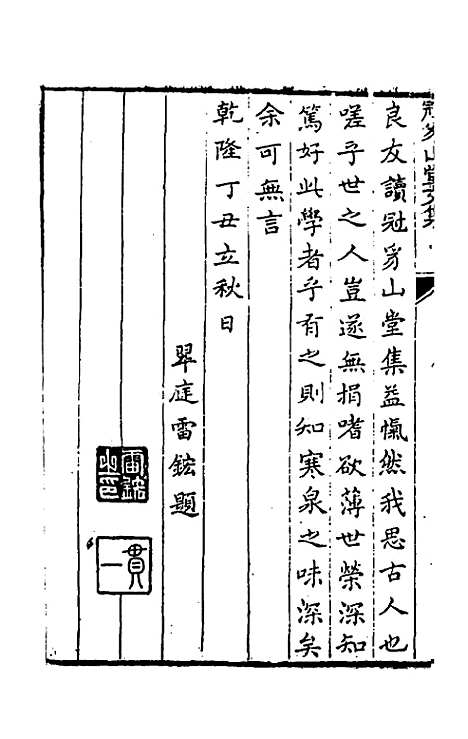 良友讀冠豸山堂集益愾然我思古人也
嗟乎世之人豈遂無捐嗜欲薄世榮深知
篤好此學者乎有之則知寒泉之味深矣
余可無言
乾隆丁丑立秋日
翠庭雷鋐題
雷鋐之印
貫一